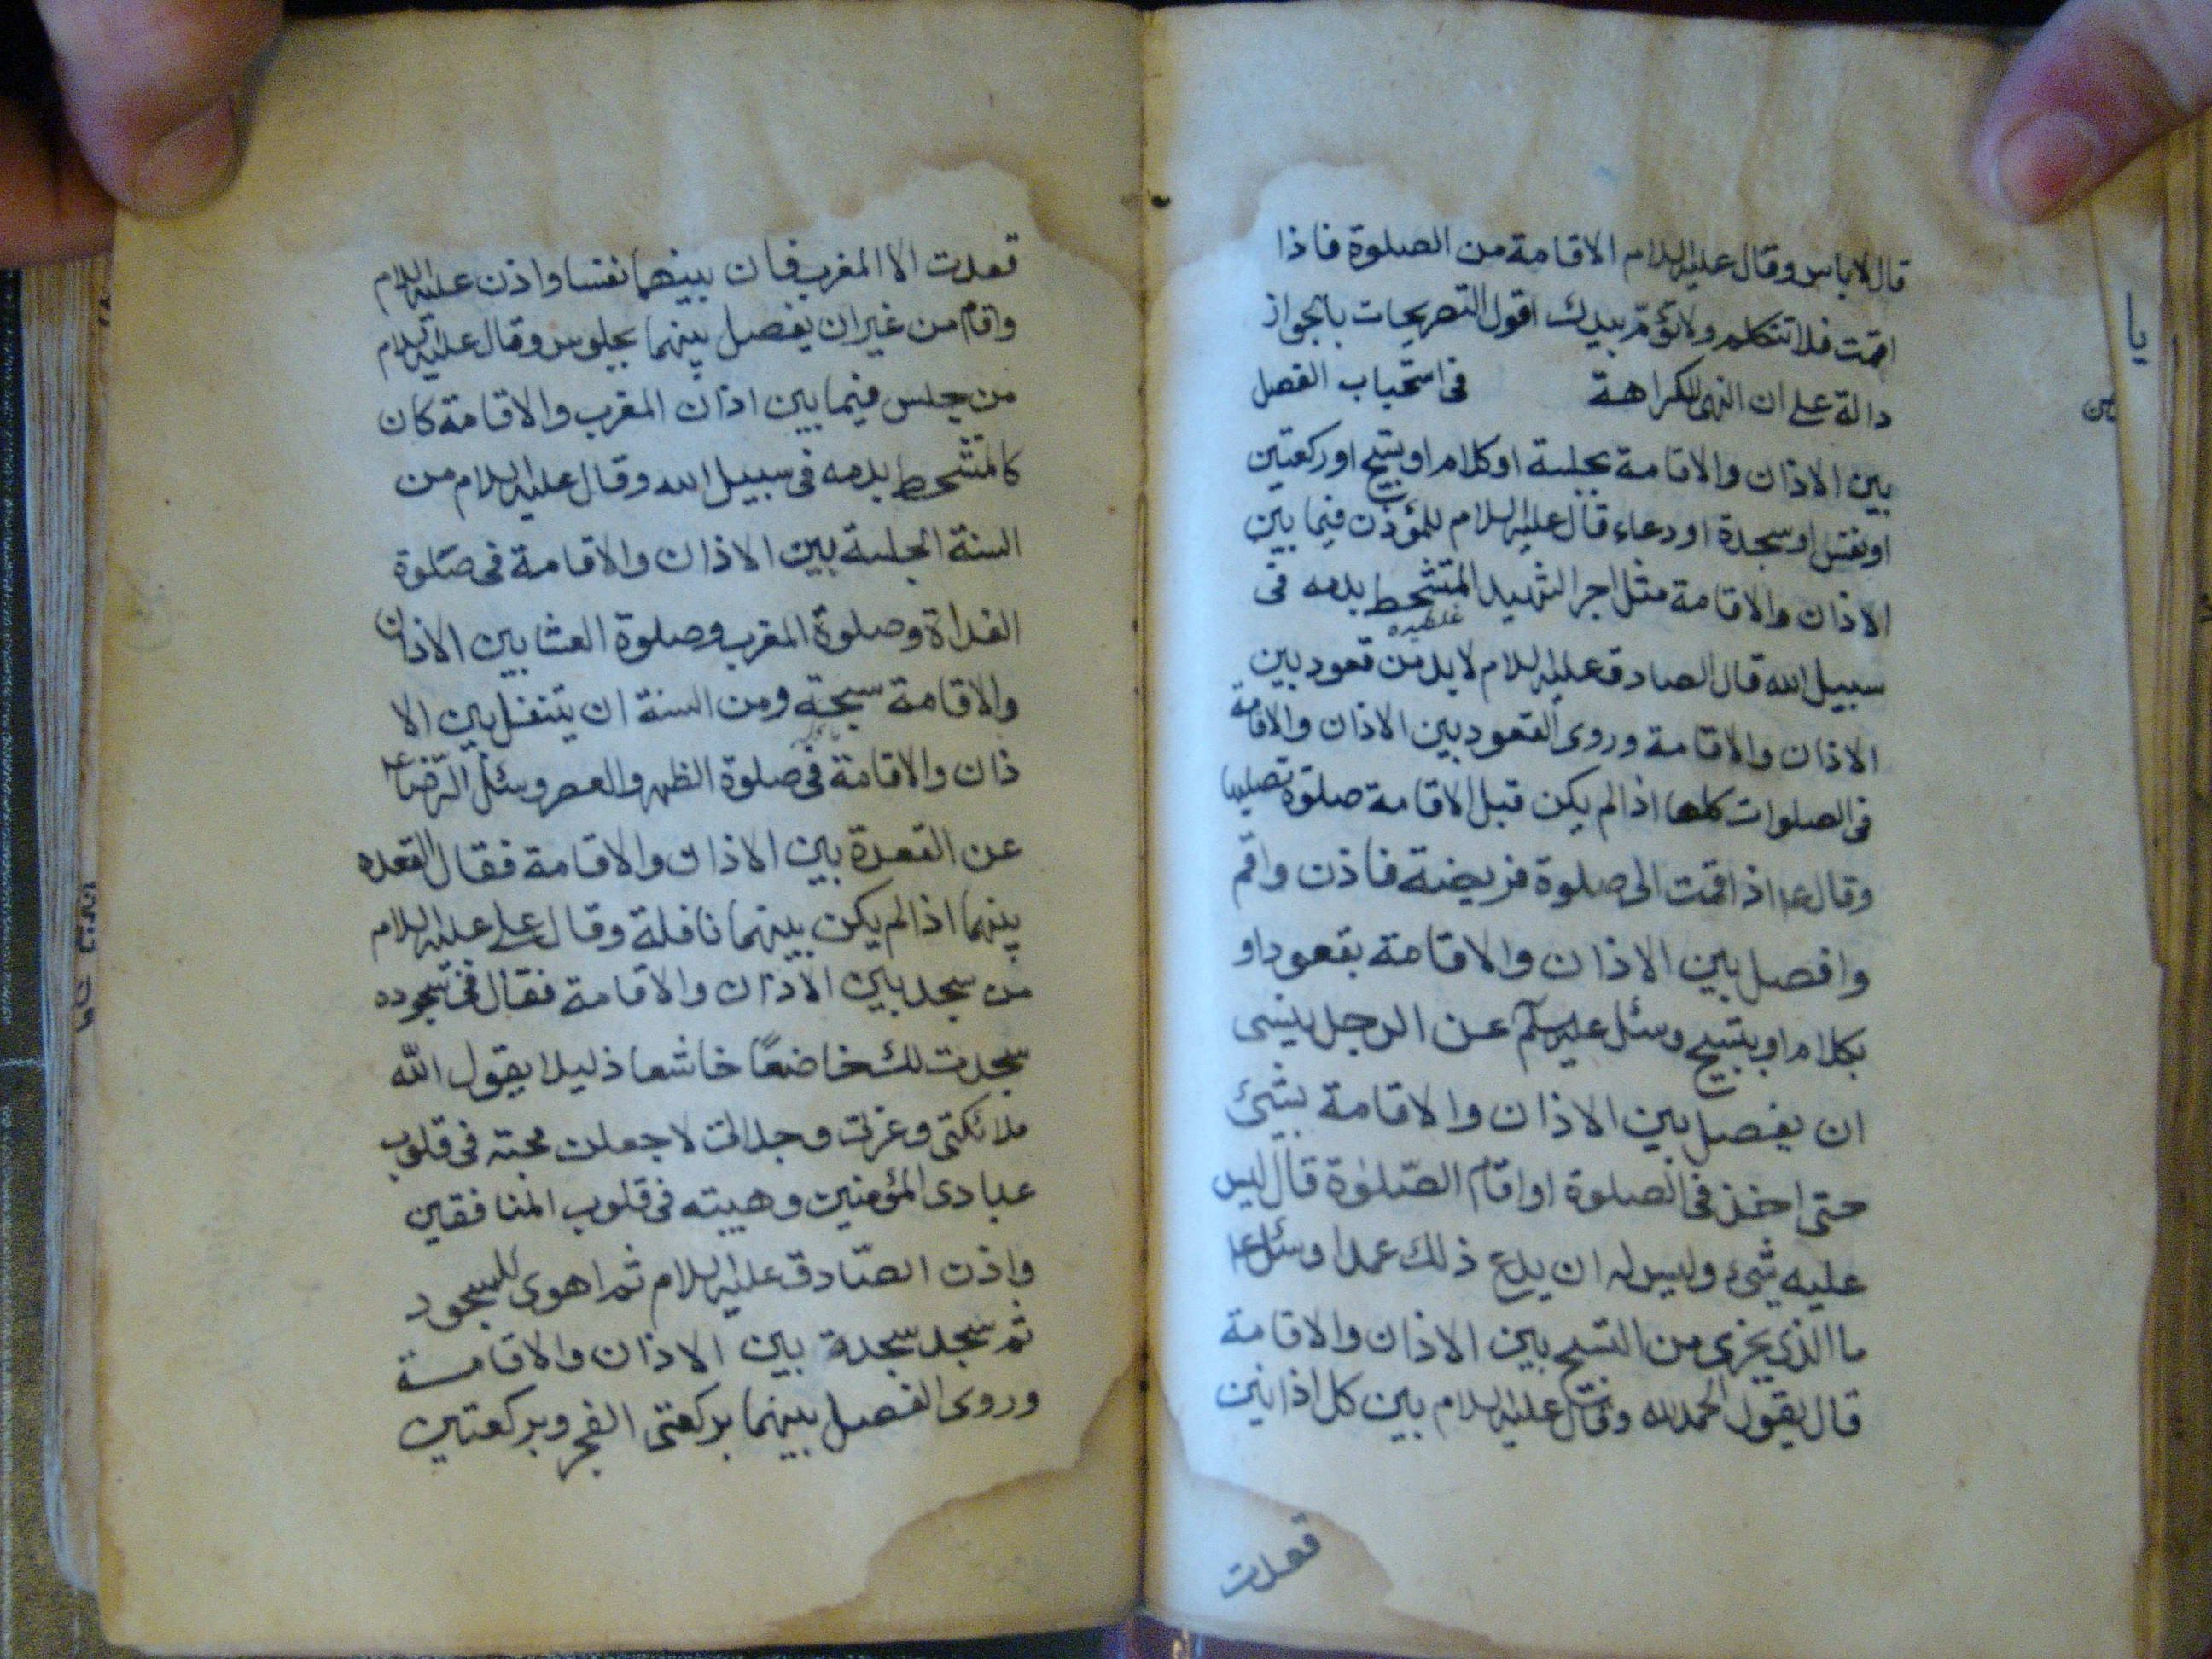 قال لا باس وقال عليه السلام الاقامة من الصلوة فاذا
اقمت فلا تتكلم ولا تؤم بيدك اقول التصريحات بالجواز
دالة على ان النهى للكراهة فى استحباب الفصل
بين الاذان والاقامة بجلسة او كلام او بتسبيح او ركعتين
او نفس او سجدة او دعاء قال عليه السلام للمؤذن فيما بين
الاذان والاقامة مثل اجر الشهيد المتشحط بدمه فى
سبيل الله قال الصادق عليه السلام لا بد من قعود بين
الاذان والاقامة وروى القعود بين الاذان والاقامة
فى الصلوات كلها اذا لم يكن قبل الاقامة صلوة تصليها
وقال ع اذا قمت الى صلوة فريضة فاذن واقم
وافصل بين الاذان والاقامة بقعود او
بكلام او بتسبيح وسئل عليه سلم عن الرجل ينسى
ان يفصل بين الاذان والاقامة بشئ
حتى اخذ فى الصلوة او اقام الصّلوة قال ليس
عليه شئ وليس له ان يدع ذلك عمدا وسئل ع
ما الذى يجزى من التسبيح بين الاذان والاقامة
قال يقول الحمد لله وقال عليه السلام بين كل اذانين
قعدت
قعدت الا المغرب فان بينهما نفسا واذن عليه السلام
واقام من غير ان يفصل بينهما بجلوس وقال عليه السلام
من جلس فيما بين اذان المغرب والاقامة كان
كالمتشحط بدمه فى سبيل الله وقال عليه السلام من
السنة الجلسة بين الاذان والاقامة فى صلوة
الغداة وصلوة المغرب وصلوة العشا بين الاذان
والاقامة سبحة ومن السنة ان يتنفل بين الا
ذان والاقامة فى صلوة الظهر والعصر وسئل الرّضا ع
عن القعدة بين الاذان والاقامة فقال القعده
بينهما اذا لم يكن بينهما نافلة وقال على عليه السلام
من سجد بين الاذان والاقامة فقال فى سجوده
سجدت لك خاضعًا خاشعا ذليلا يقول اللّه
ملائكتى وعزتى وجلالى لاجعلن محبته فى قلوب
عبادى المؤمنين وهيبته فى قلوب المنافقين
واذن الصّادق عليه السلام ثم اهوى للسجود
ثم سجد سجدة بين الاذان والاقامة
وروى الفصل بينهما بركعتى الفجر وبركعتين